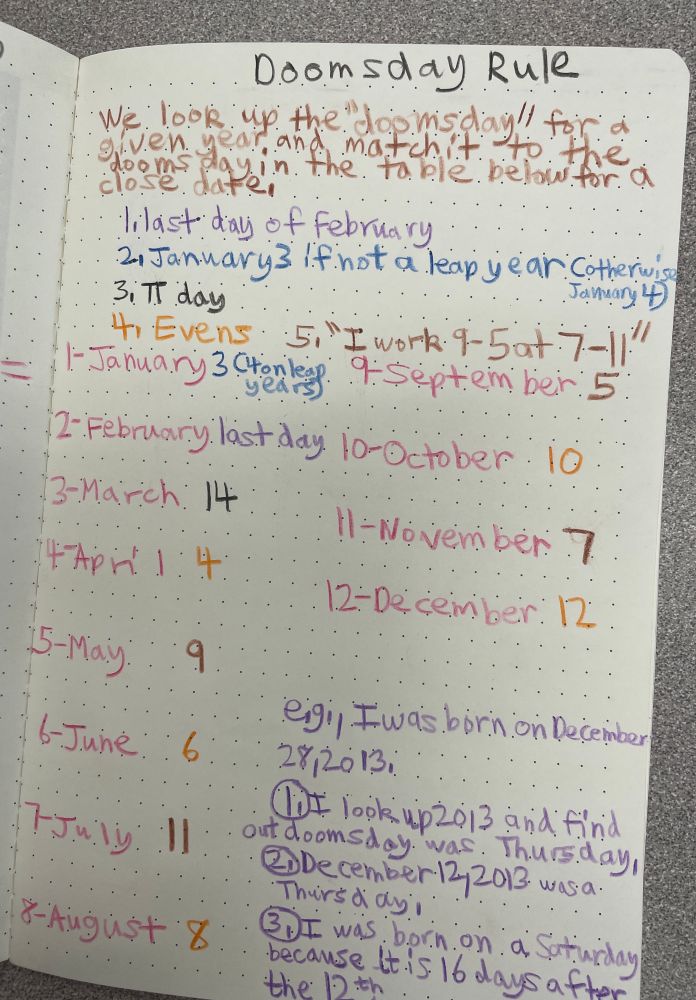 Doomsday Rule
We look up the "doomsday" for a
given year and match it to the
doomsday in the table below for a
close date.
1. last day of February
2. January 3 if not a leap year (otherwise
January 4)
3. π day
4. Evens 5. "I work 9-5 at 7-11"
1-January 3 (4 on leap
years)
2-February last day
3-March 14
4-April 4
5-May 9
6-June 6
7-July 11
8-August 8
9-September 5
10-October 10
11-November 7
12-December 12
e.g., I was born on December
28, 2013.
1. I look up 2013 and find
out doomsday was Thursday.
2. December 12, 2013 was a
Thursday.
3. I was born on a Saturday
because it is 16 days after
the 12th
=